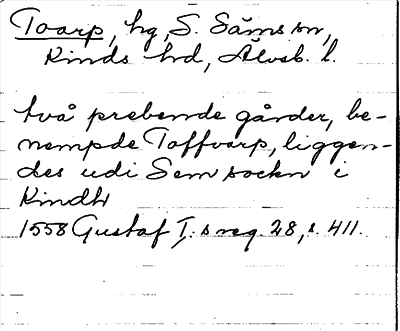 Toarp, hg, S. Säms sn,
Kinds hd, Älvsb. l.
två prebende gårder, be-
nempde Toffvarp, liggen-
des udi Sem sockn i
Kindh
1558 Gustaf I:s reg. 28, s. 411.